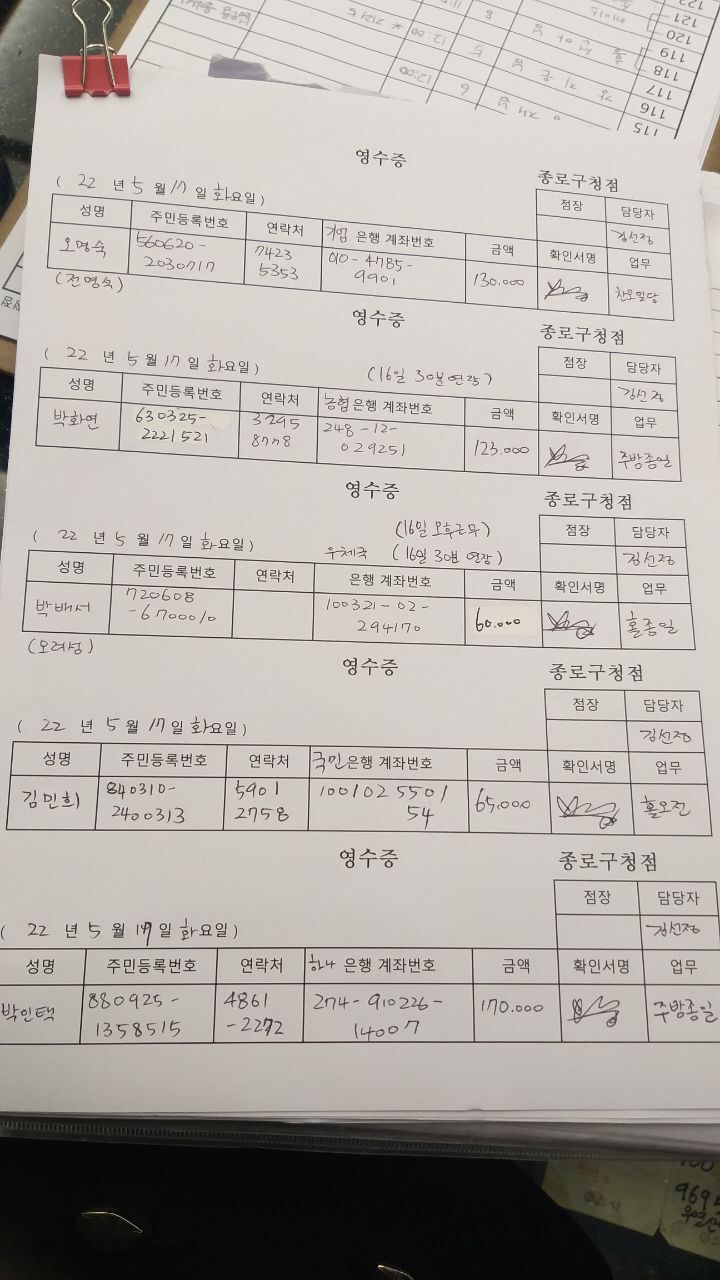 영수증
종로구청점
( 22 년 5 월 17 일 화요일 )
점장 담당자
김선정
성명 주민등록번호 연락처 기업 은행 계좌번호 금액 확인서명 업무
오명숙 560620- 7423 010-4785- 130.000
2030717 5353 9901
(전명숙)
영수증
종로구청점
( 22 년 5 월 17 일 화요일 )
(16일 30분 연장)
점장 담당자
김선정
성명 주민등록번호 연락처 농협 은행 계좌번호 금액 확인서명 업무
박화연 630325- 3295 248-12- 123.000 주방종일
2221521 8778 029251
영수증
종로구청점
(16일 오후근무)
( 22 년 5 월 17 일 화요일 )
우체국 (16일 30분 연장)
점장 담당자
김선정
성명 주민등록번호 연락처 은행 계좌번호 금액 확인서명 업무
박배서 720608 100321-02- 60.000 홀종일
-6700010 294170
영수증
종로구청점
( 22 년 5 월 17 일 화요일 )
점장 담당자
김선정
성명 주민등록번호 연락처 국민 은행 계좌번호 금액 확인서명 업무
김민희 840310- 5901 1001025501 65.000 홀오전
2400313 2758 54
영수증
종로구청점
( 22 년 5 월 17 일 화요일 )
점장 담당자
김선정
성명 주민등록번호 연락처 하나 은행 계좌번호 금액 확인서명 업무
박인택 880925- 4861 274-910226- 170.000 주방종일
1358515 -2272 14007
122
121
120
119
118
117
116
115
12:00
12:00